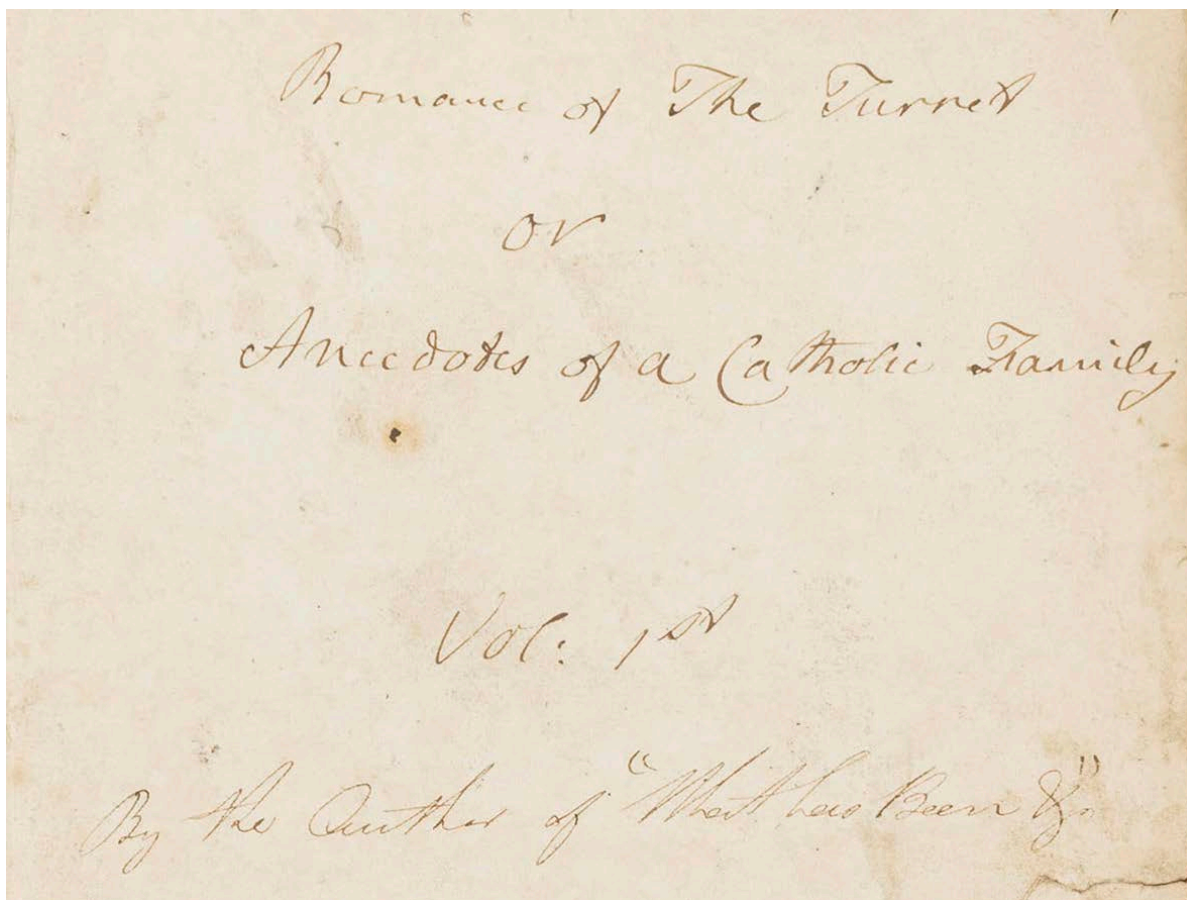 Romance of The Turret
or
Anecdotes of a Catholic Family
Vol: 1st
By the Author of "What has Been &c"